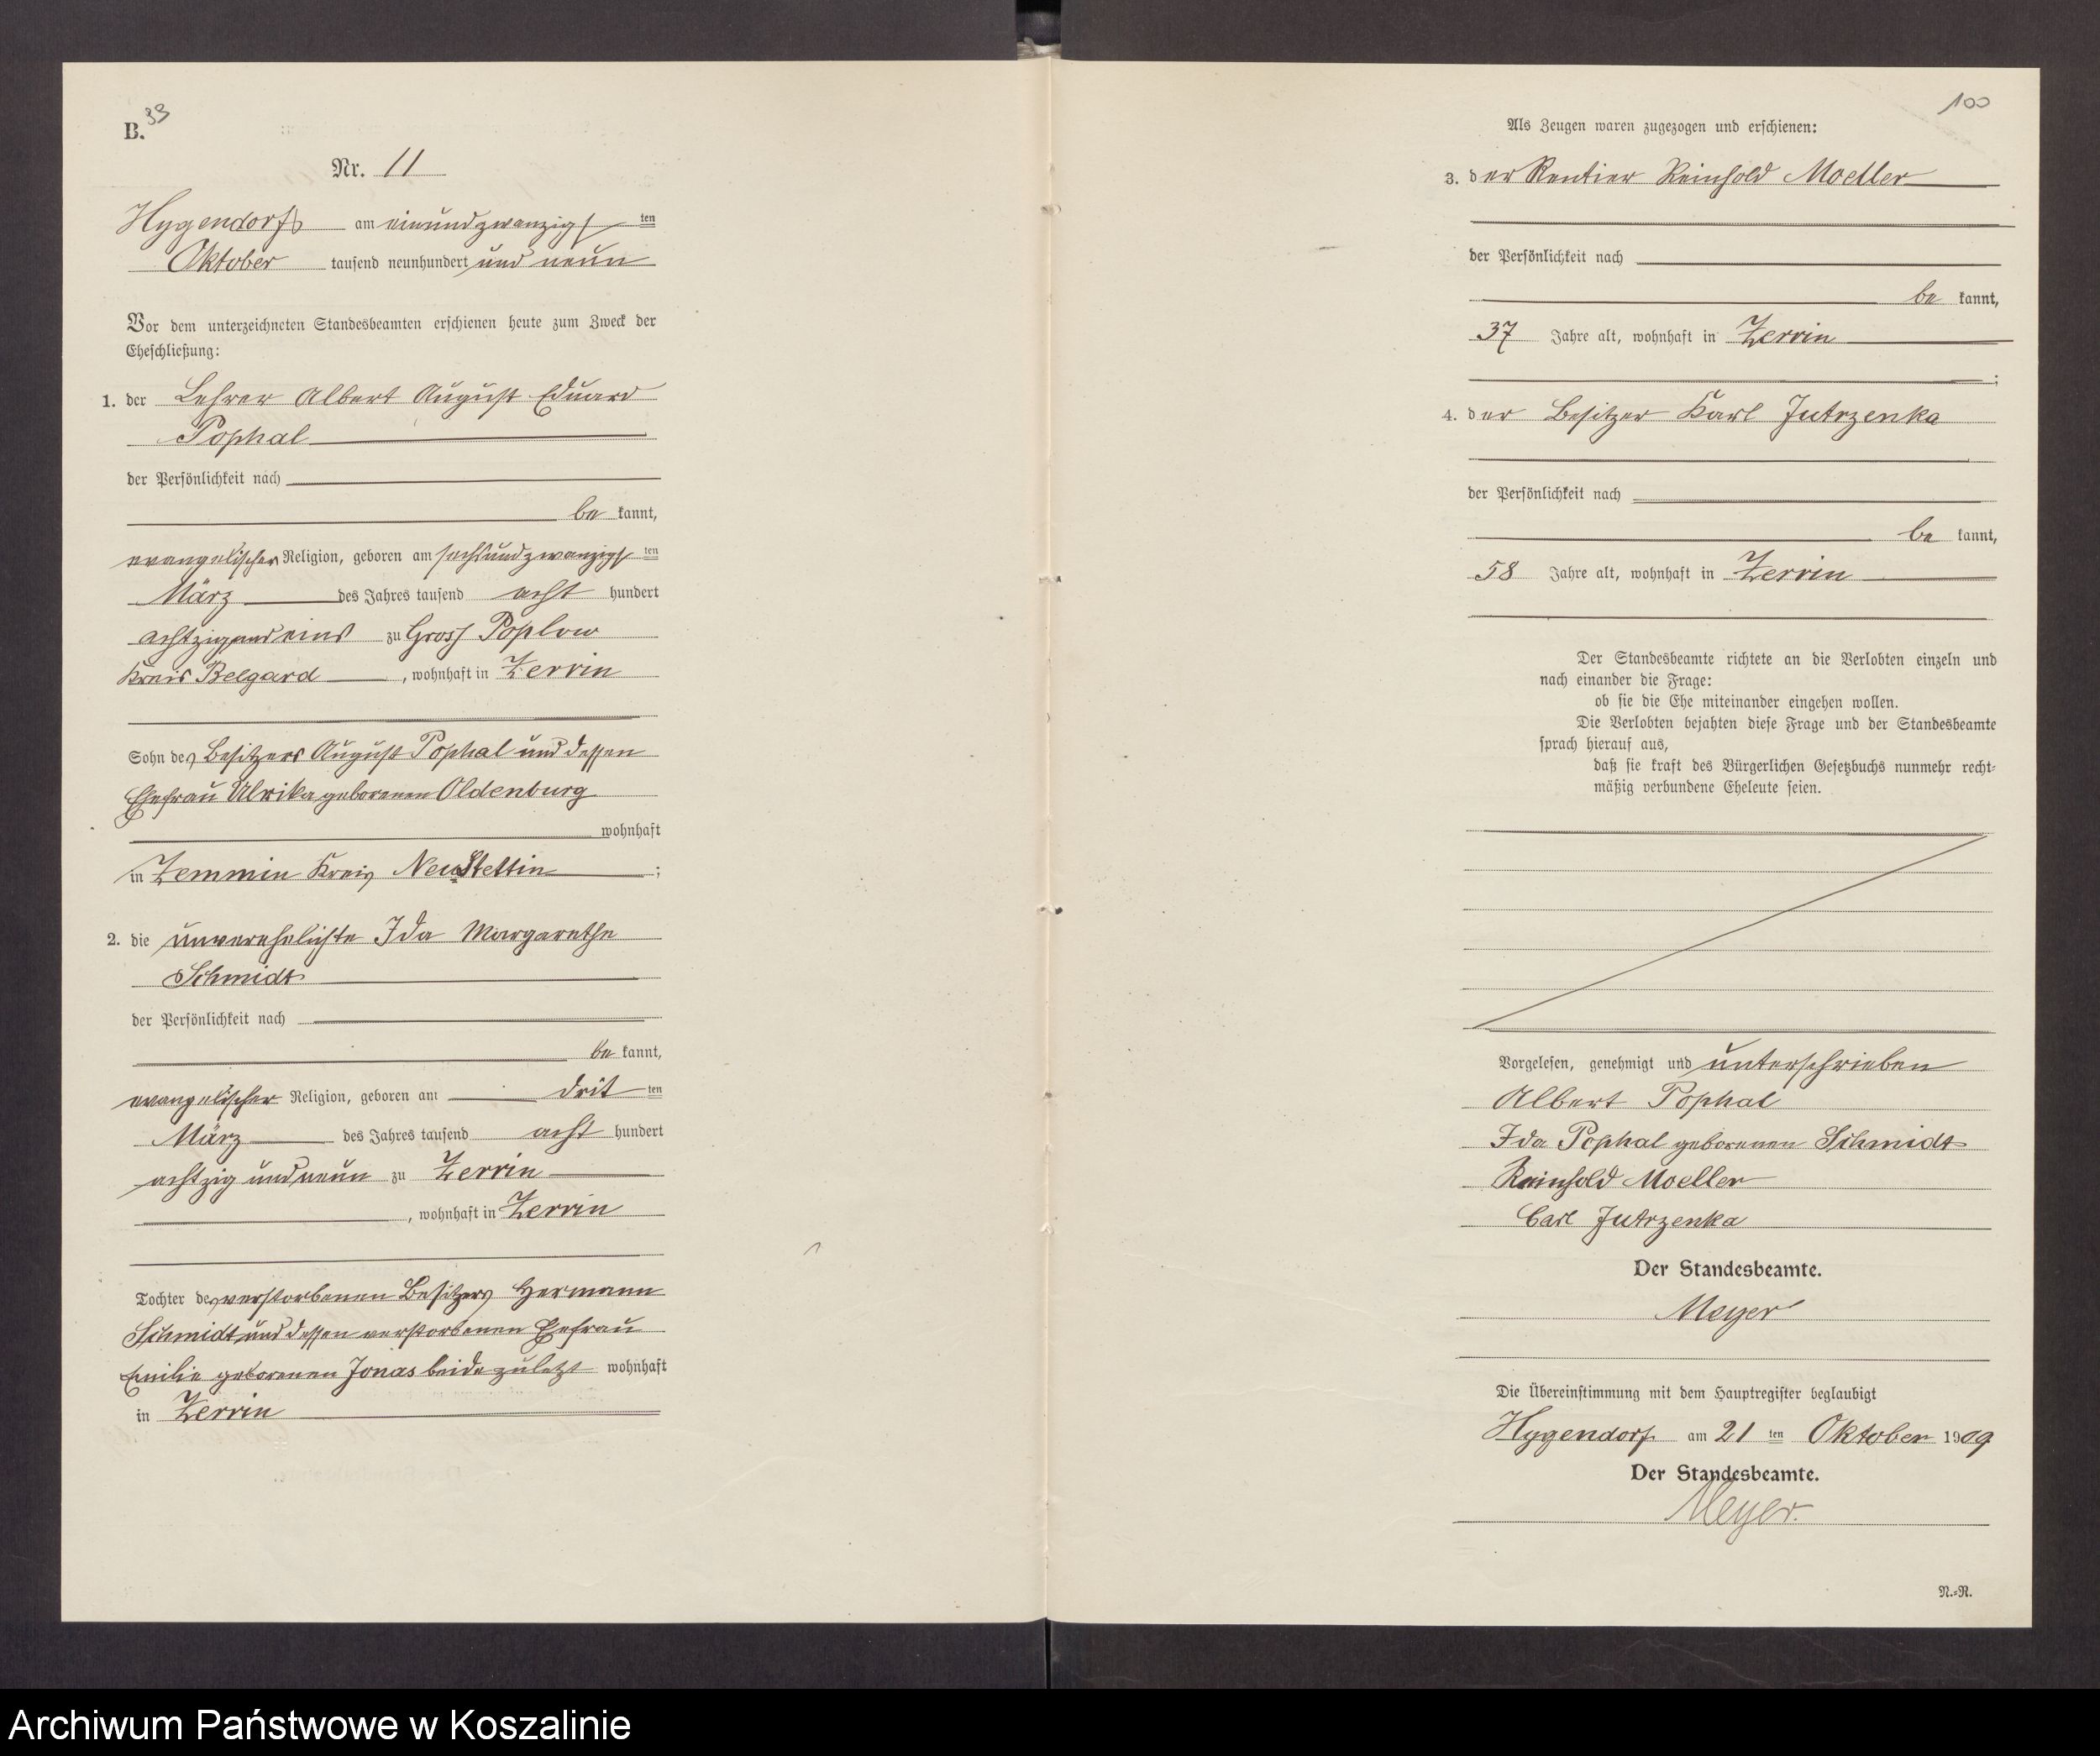 B. 33
Nr. 11
Hygendorf am einundzwanzigsten
Oktober tausend neunhundert und neun
Vor dem unterzeichneten Standesbeamten erschienen heute zum Zweck der
Eheschließung:
1. der Lehrer Albert August Eduard
Pophal
der Persönlichkeit nach
be kannt,
evangelischer Religion, geboren am sechsundzwanzigsten
März des Jahres tausend acht hundert
achtzig und eins zu Gross Poplow
Kreis Belgard, wohnhaft in Zerrin
Sohn des Besitzers August Pophal und dessen
Ehefrau Ulrika geborenen Oldenburg
wohnhaft
in Zemmin Kreis Neu Stettin;
2. die unverehelichte Ida Margarethe
Schmidt
der Persönlichkeit nach
be kannt,
evangelischer Religion, geboren am dritten
März des Jahres tausend acht hundert
achtzig und neun zu Zerrin
, wohnhaft in Zerrin
Tochter des verstorbenen Besitzers Hermann
Schmidt und dessen verstorbenen Ehefrau
Emilie geborenen Jonas beide zuletzt wohnhaft
in Zerrin
100
Als Zeugen waren zugezogen und erschienen:
3. der Rentier Reinhold Moeller
der Persönlichkeit nach
be kannt,
37 Jahre alt, wohnhaft in Zerrin
;
4. der Besitzer Karl Jutrzenka
der Persönlichkeit nach
be kannt,
58 Jahre alt, wohnhaft in Zerrin
Der Standesbeamte richtete an die Verlobten einzeln und
nach einander die Frage:
ob sie die Ehe miteinander eingehen wollen.
Die Verlobten bejahten diese Frage und der Standesbeamte
sprach hierauf aus,
daß sie kraft des Bürgerlichen Gesetzbuchs nunmehr recht-
mäßig verbundene Eheleute seien.
Vorgelesen, genehmigt und unterschrieben
Albert Pophal
Ida Pophal geborenen Schmidt
Reinhold Moeller
Carl Jutrzenka
Der Standesbeamte.
Meyer
Die Übereinstimmung mit dem Hauptregister beglaubigt
Hygendorf am 21 ten Oktober 1909
Der Standesbeamte.
Meyer.
N.-R.
Archiwum Państwowe w Koszalinie